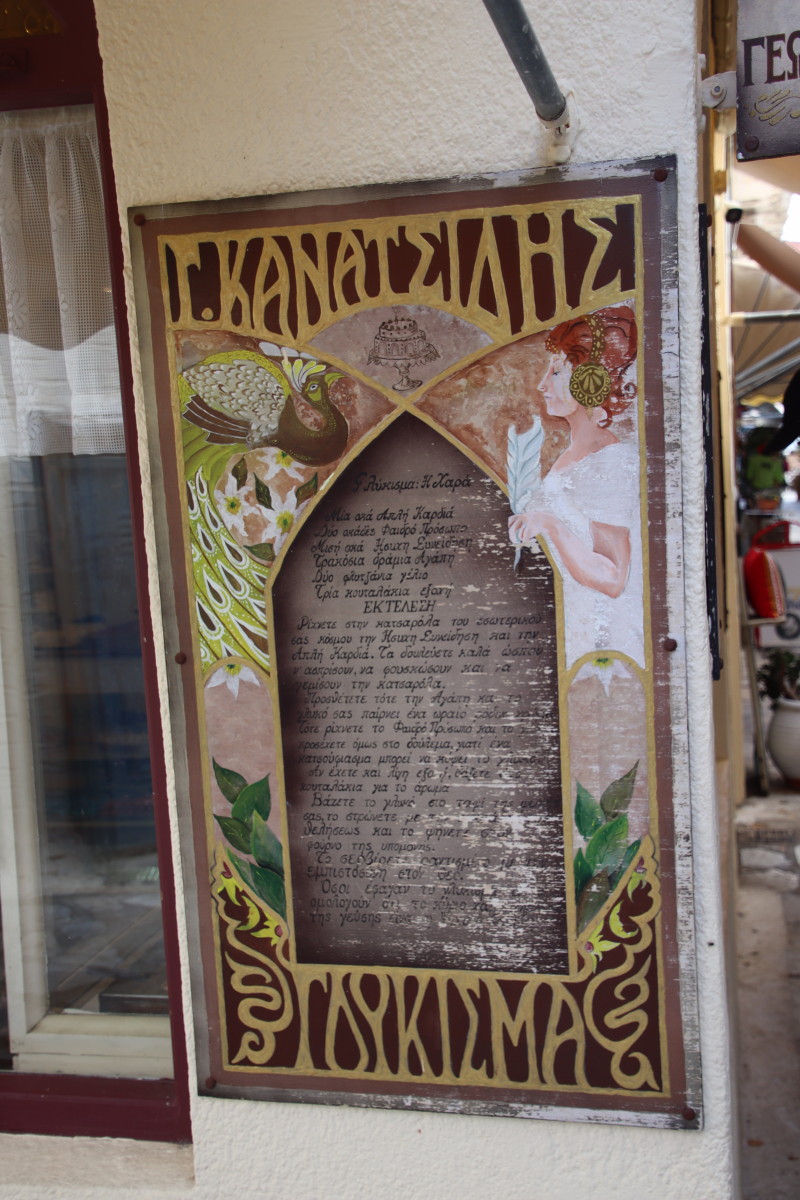 ΓΕΩ
Γ. ΚΑΝΑΤΣΙΔΗΣ
Γλύκισμα: Η Χαρά
Μία οκά Απλή Καρδιά
Δύο οκάδες Φαιδρό Πρόσωπο
Μισή οκά Ησυχη Συνείδηση
Τρακόσια δράμια Αγάπη
Δύο φλυτζάνια γέλιο
Τρία κουταλάκια εξοχή
ΕΚΤΕΛΕΣΗ
Ρίχνετε στην κατσαρόλα του εσωτερικού
σας κόσμου την Ησυχη Συνείδηση και την
Απλή Καρδιά. Τα δουλεύετε καλά ώσπου
ν' ασπρίσουν, να φουσκώσουν και να
γεμίσουν την κατσαρόλα.
Προσθέτετε τότε την Αγάπη και το
γλυκό σας παίρνει ένα ωραίο
Τότε ρίχνετε το Φαιδρό Πρόσωπο και το
προσέχετε όμως στο δούλεμα, γιατί ένα
κατσούφιασμα μπορεί να κόψει το
αν έχετε και λίγη εξοχή, βάζετε
κουταλάκια για το άρωμα
Βάζετε το γλυκό στο ταψί της
σας, το στρώνετε με
θελήσεως και το ψήνετε στον
φούρνο της υπομονής.
Το σερβίρετε
εμπιστοσύνη στον
Όσοι έφαγαν το
ομολογούν ότι το κύριο
της γεύσης
ΓΛΥΚΙΣΜΑ